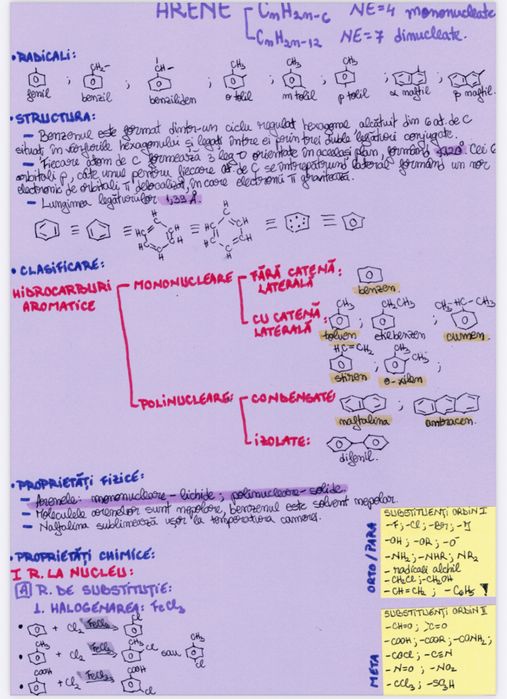 ARENE
CnH2n-6 NE=4 mononucleate
CnH2n-12 NE=7 dinucleate.
• RADICALI:
CH2- CH- CH3 CH3 CH3
fenil ; benzil ; benziliden ; o tolil ; m tolil ; p tolil ; α naftil ; β naftil
• STRUCTURA:
- Benzenul este format dintr-un ciclu regulat hexagonal alcătuit din 6 at. de C
situați în vârfurile hexagonului și legați între ei prin trei duble legături conjugate.
- Fiecare atom de C formează 3 leg σ orientate în același plan, formând 120°. Cei 6
orbitali p, câte unul pentru fiecare at. de C se întrepătrund lateral formând un nor
electronic de orbitali π delocalizați, în care electronii π gravitează.
- Lungimea legăturilor 1,39 Å.
• CLASIFICARE:
HIDROCARBURI AROMATICE
MONONUCLEARE
FĂRĂ CATENĂ LATERALĂ:
benzen.
CU CATENĂ LATERALĂ:
CH3 CH2CH3 CH3-HC-CH3
toluen ; etilbenzen ; cumen.
HC=CH2 CH3 CH3
stiren ; o-xilen ;
POLINUCLEARE:
CONDENSATE:
naftalina ; antracen.
IZOLATE:
difenil.
• PROPRIETĂȚI FIZICE:
- Arenele: mononucleare - lichide ; polinucleare - solide.
- Moleculele arenelor sunt nepolare, benzenul este solvent nepolar.
- Naftalina sublimează ușor la temperatura camerei.
• PROPRIETĂȚI CHIMICE:
I R. LA NUCLEU:
A R. DE SUBSTITUȚIE:
1. HALOGENAREA: FeCl3
+ Cl2 FeCl3 Cl
CH3 + Cl2 FeCl3 CH3 Cl sau CH3 Cl
COOH + Cl2 FeCl3 COOH Cl
ORTO/PARA
SUBSTITUENȚI ORDIN I
-F ; -Cl ; -Br ; -I
-OH ; -OR ; -O⁻
-NH2 ; -NHR ; NR2
- radicali alchil
-CH2Cl ; -CH2OH
-CH=CH2 ; -C6H5 !
META
SUBSTITUENȚI ORDIN II
-CH=O ; C=O
-COOH ; -COOR ; -CONH2 ;
-COCl ; -C≡N
-N=O ; -NO2
-CCl3 ; -SO3H